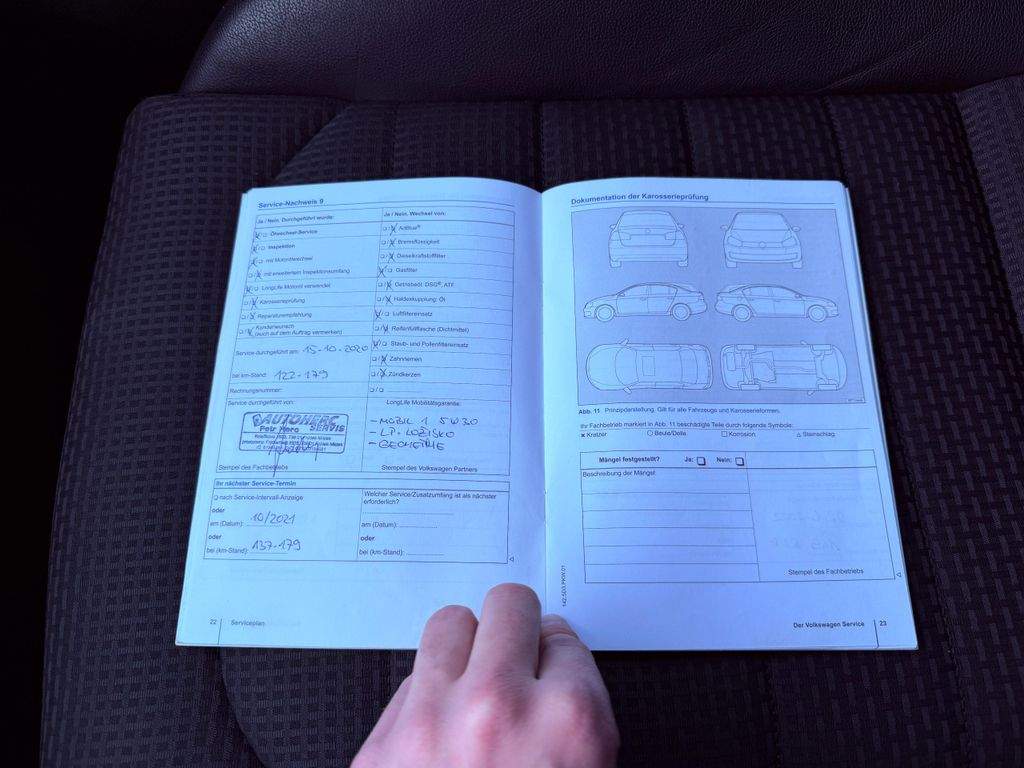 Service-Nachweis 9
Ja / Nein. Durchgeführt wurde:
Ölwechsel-Service
Inspektion
mit Motorölwechsel
mit erweitertem Inspektionsumfang
LongLife Motoröl verwendet
Karosserieprüfung
Reparaturempfehlung
Kundenwunsch
(auch auf dem Auftrag vermerken)
Service durchgeführt am: 15-10-2020
bei km-Stand: 122-179
Rechnungsnummer:
Service durchgeführt von:
AUTOHERC
Petr Herc SERVIS
Stempel des Fachbetriebs
Ja / Nein. Wechsel von:
AdBlue®
Bremsflüssigkeit
Dieselkraftstofffilter
Gasfilter
Getriebeöl: DSG®, ATF
Haldexkupplung: Öl
Luftfiltereinsatz
Reifenfüllflasche (Dichtmittel)
Staub- und Pollenfiltereinsatz
Zahnriemen
Zündkerzen
LongLife Mobilitätsgarantie:
- MOBIL 1 5W30
- LP. LOŽISKO
- GEOMETRIE
Stempel des Volkswagen Partners
Ihr nächster Service-Termin
nach Service-Intervall-Anzeige
oder
am (Datum): 10/2021
oder
bei (km-Stand): 137-179
Welcher Service/Zusatzumfang ist als nächster
erforderlich?
am (Datum):
oder
bei (km-Stand):
22 Serviceplan
Dokumentation der Karosserieprüfung
Abb. 11 Prinzipdarstellung. Gilt für alle Fahrzeuge und Karosserieformen.
Ihr Fachbetrieb markiert in Abb. 11 beschädigte Teile durch folgende Symbole:
Kratzer Beule/Delle Korrosion Steinschlag
Mängel festgestellt? Ja: Nein:
Beschreibung der Mängel:
Stempel des Fachbetriebs
142.5D3.PKW.01
Der Volkswagen Service 23